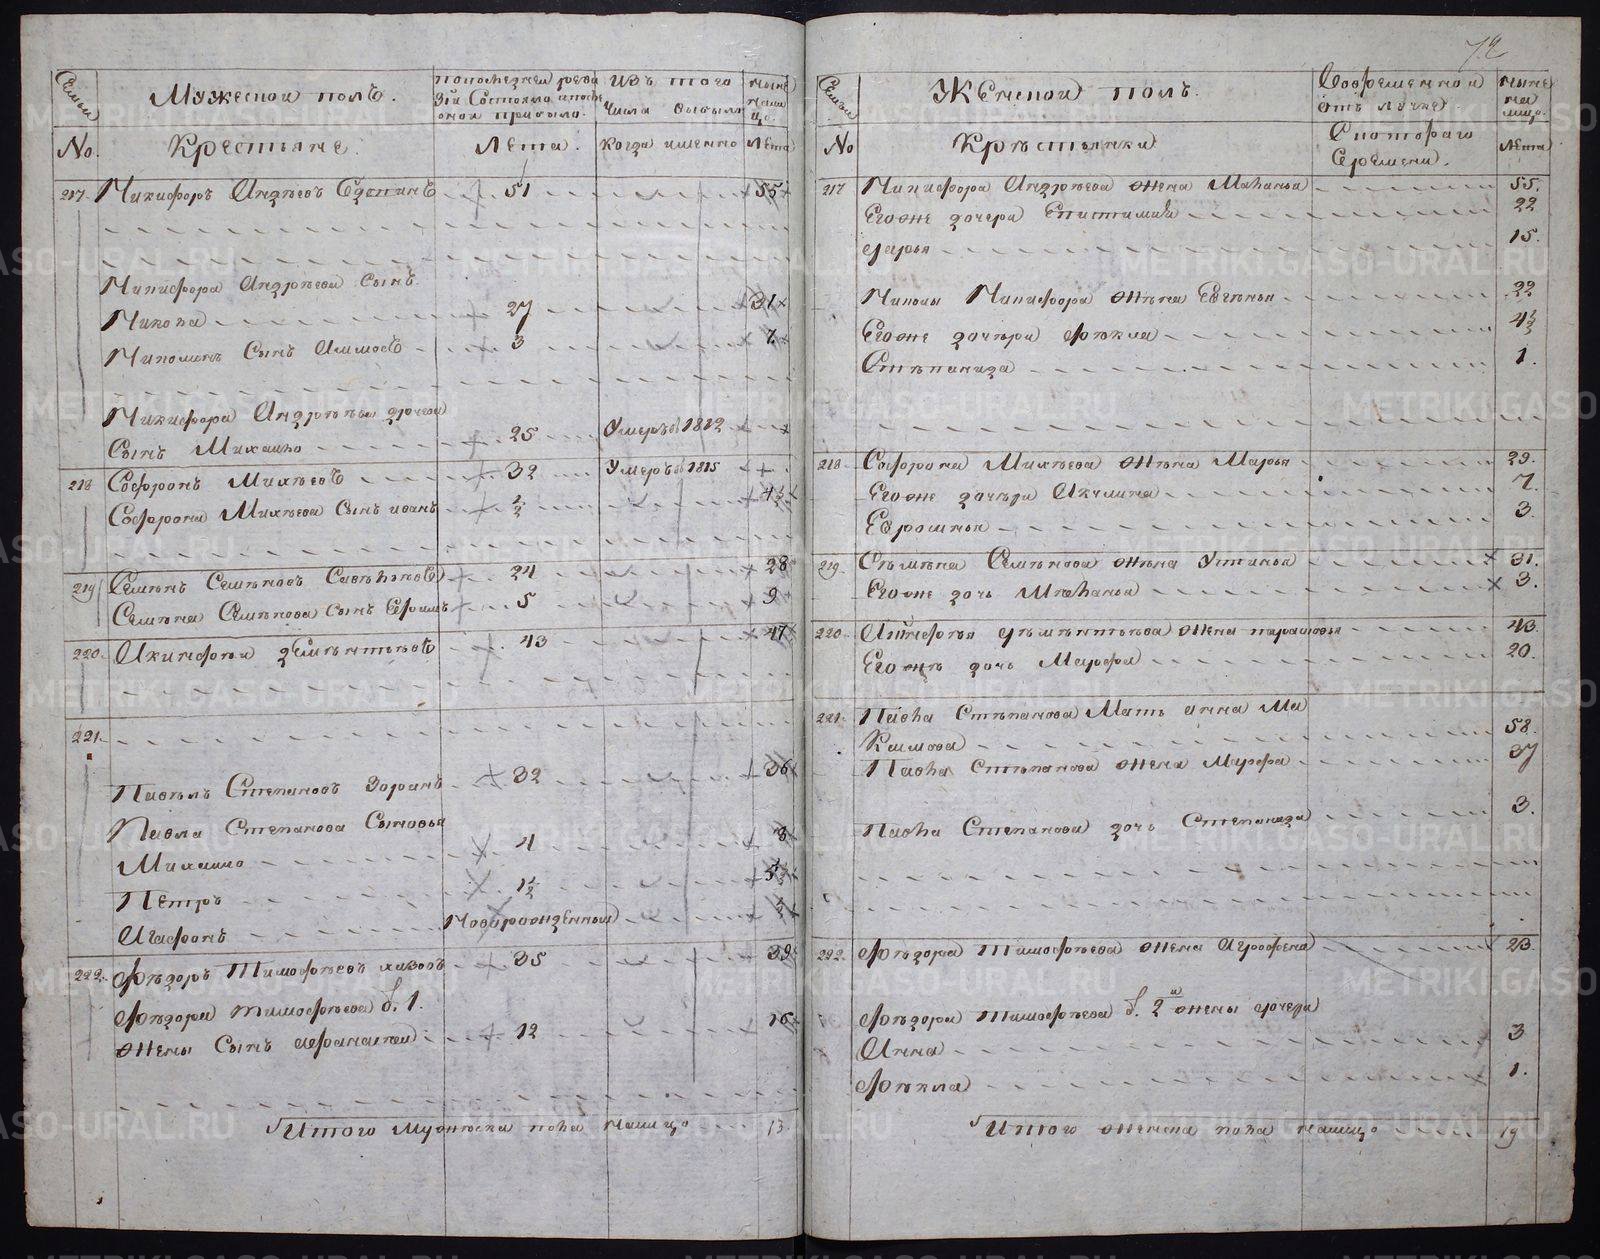 72
Семьи
Мужескои полъ.
По последней реви
зіи состояло и после
оной прибыло.
Изъ того
числа выбыло
ныне
на ли
цо.
No.
Крестьяне.
Лета.
Когда именно
Лета
217. Никифоръ Андреевъ 51 55
Никифора Андреева сынъ
Никола 27 31
Николинъ сынъ 3 7.
Никифора Андреева
Сынъ Михаило 25 Умеръ въ 1812
218 Софронъ Михеевъ 32 Умеръ въ 1815
Софрона Михеева сынъ иванъ ½ 4½
219 Семенъ Семеновъ 24 28
Семена Семенова сынъ Ефимъ 5 9
220. Акинфеи Дементьевъ 43 47
221.
Павелъ Степановъ Зоринъ 32 36
Павла Степанова Сыновья
Михаило 4 8
Петръ 1½ 5½
Агафонъ Новорожденный ½
222. Федоръ Тимофеевъ 35 39
Федора Тимофеева 1.
жены сынъ афанасеи 12 16
Итого Мужеска пола налицо 13.
Семьи
Женскои полъ.
Во временной
отлучке.
ныне
на
лицо.
No
Крестьянки
С котораго
времени.
Лета
217 Никифора Андреева жена Маланья 55.
Его же дочери Епистимия 22
Дарья 15.
Николы Никифора жена Евгенья 22
Его же дочери Фекла 4½
Степанида 1.
218. Софрона Михеева жена Марья 29.
Его же дочери Акилина 7.
Евросинья 3.
219. Семена Семенова жена Устинья 31.
Его же дочь Меланья 3.
220. Акинфея Дементьева жена парасковья 43.
Его же дочь Марфа 20.
221. Павла Степанова Мать анна Ма
Кимова 58.
Павла Степанова жена Марфа 37
Павла Степанова дочь Степанида 3.
222. Федора Тимофеева жена Аграфена 23.
Федора Тимофеева 2 и жены дочери
Анна 3
Фекла 1.
Итого женска пола налицо 19
METRIKI.GASO-URAL.RU